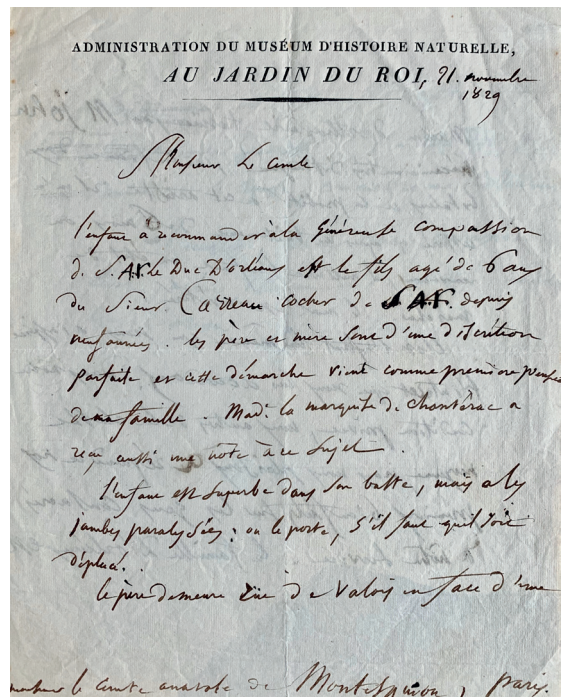 ADMINISTRATION DU MUSÉUM D'HISTOIRE NATURELLE,
AU JARDIN DU ROI, 21. novembre
1829
Monsieur Le Comte
l'enfant à recommander à la Généreuse Compassion
de S.A.R. le Duc D'orléans est le fils agé de 6 ans
du Sieur cocher de S.A.R. depuis
neuf années. les père et mère sont d'une discrétion
parfaite et cette démarche vient comme première pensée
de ma famille. Mad. la marquise de Chantérac a
reçu aussi une note à ce Sujet.
l'enfant est superbe dans son buste, mais a les
jambes paralysées: on le porte, s'il faut qu'il soit
déplacé.
le père demeure rue de Valois en face d'une
le comte anatole de Montesquiou, paris.